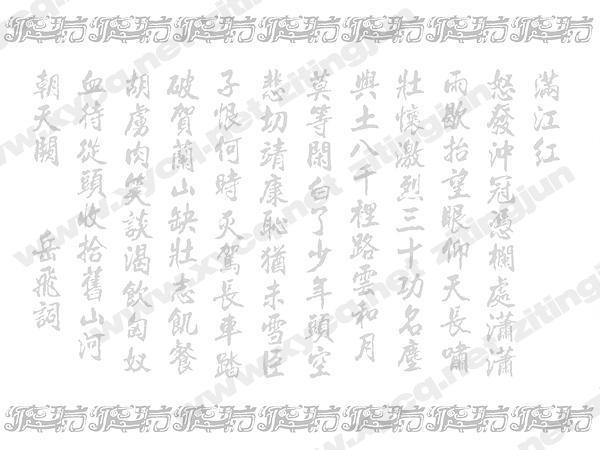 滿江紅
怒發沖冠憑欄處瀟瀟
雨歇抬望眼仰天長嘯
壯懷激烈三十功名塵
與土八千裡路雲和月
莫等閑白了少年頭空
悲切靖康恥猶未雪臣
子恨何時灭駕長車踏
破賀蘭山缺壯志飢餐
胡虜肉笑談渴飲匈奴
血待從頭收拾舊山河
朝天闕 岳飛詞
www.xycq.net zitingjun